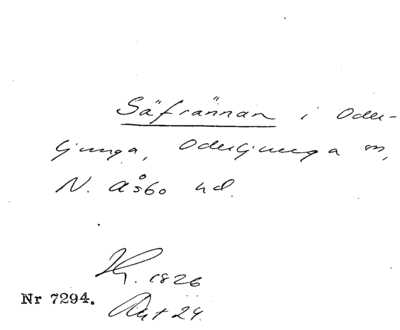 Säfrännan i Oder-
ljunga, Oderljunga sn,
N. Åsbo hd.
1826
Nr 7294. Akt 24.